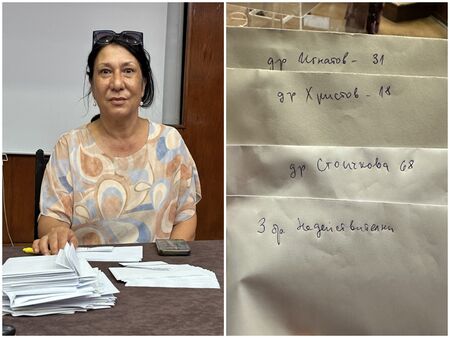 др Игнатов - 31
др Христов - 18
др Стоичкова 68
3 бр. Недействителни